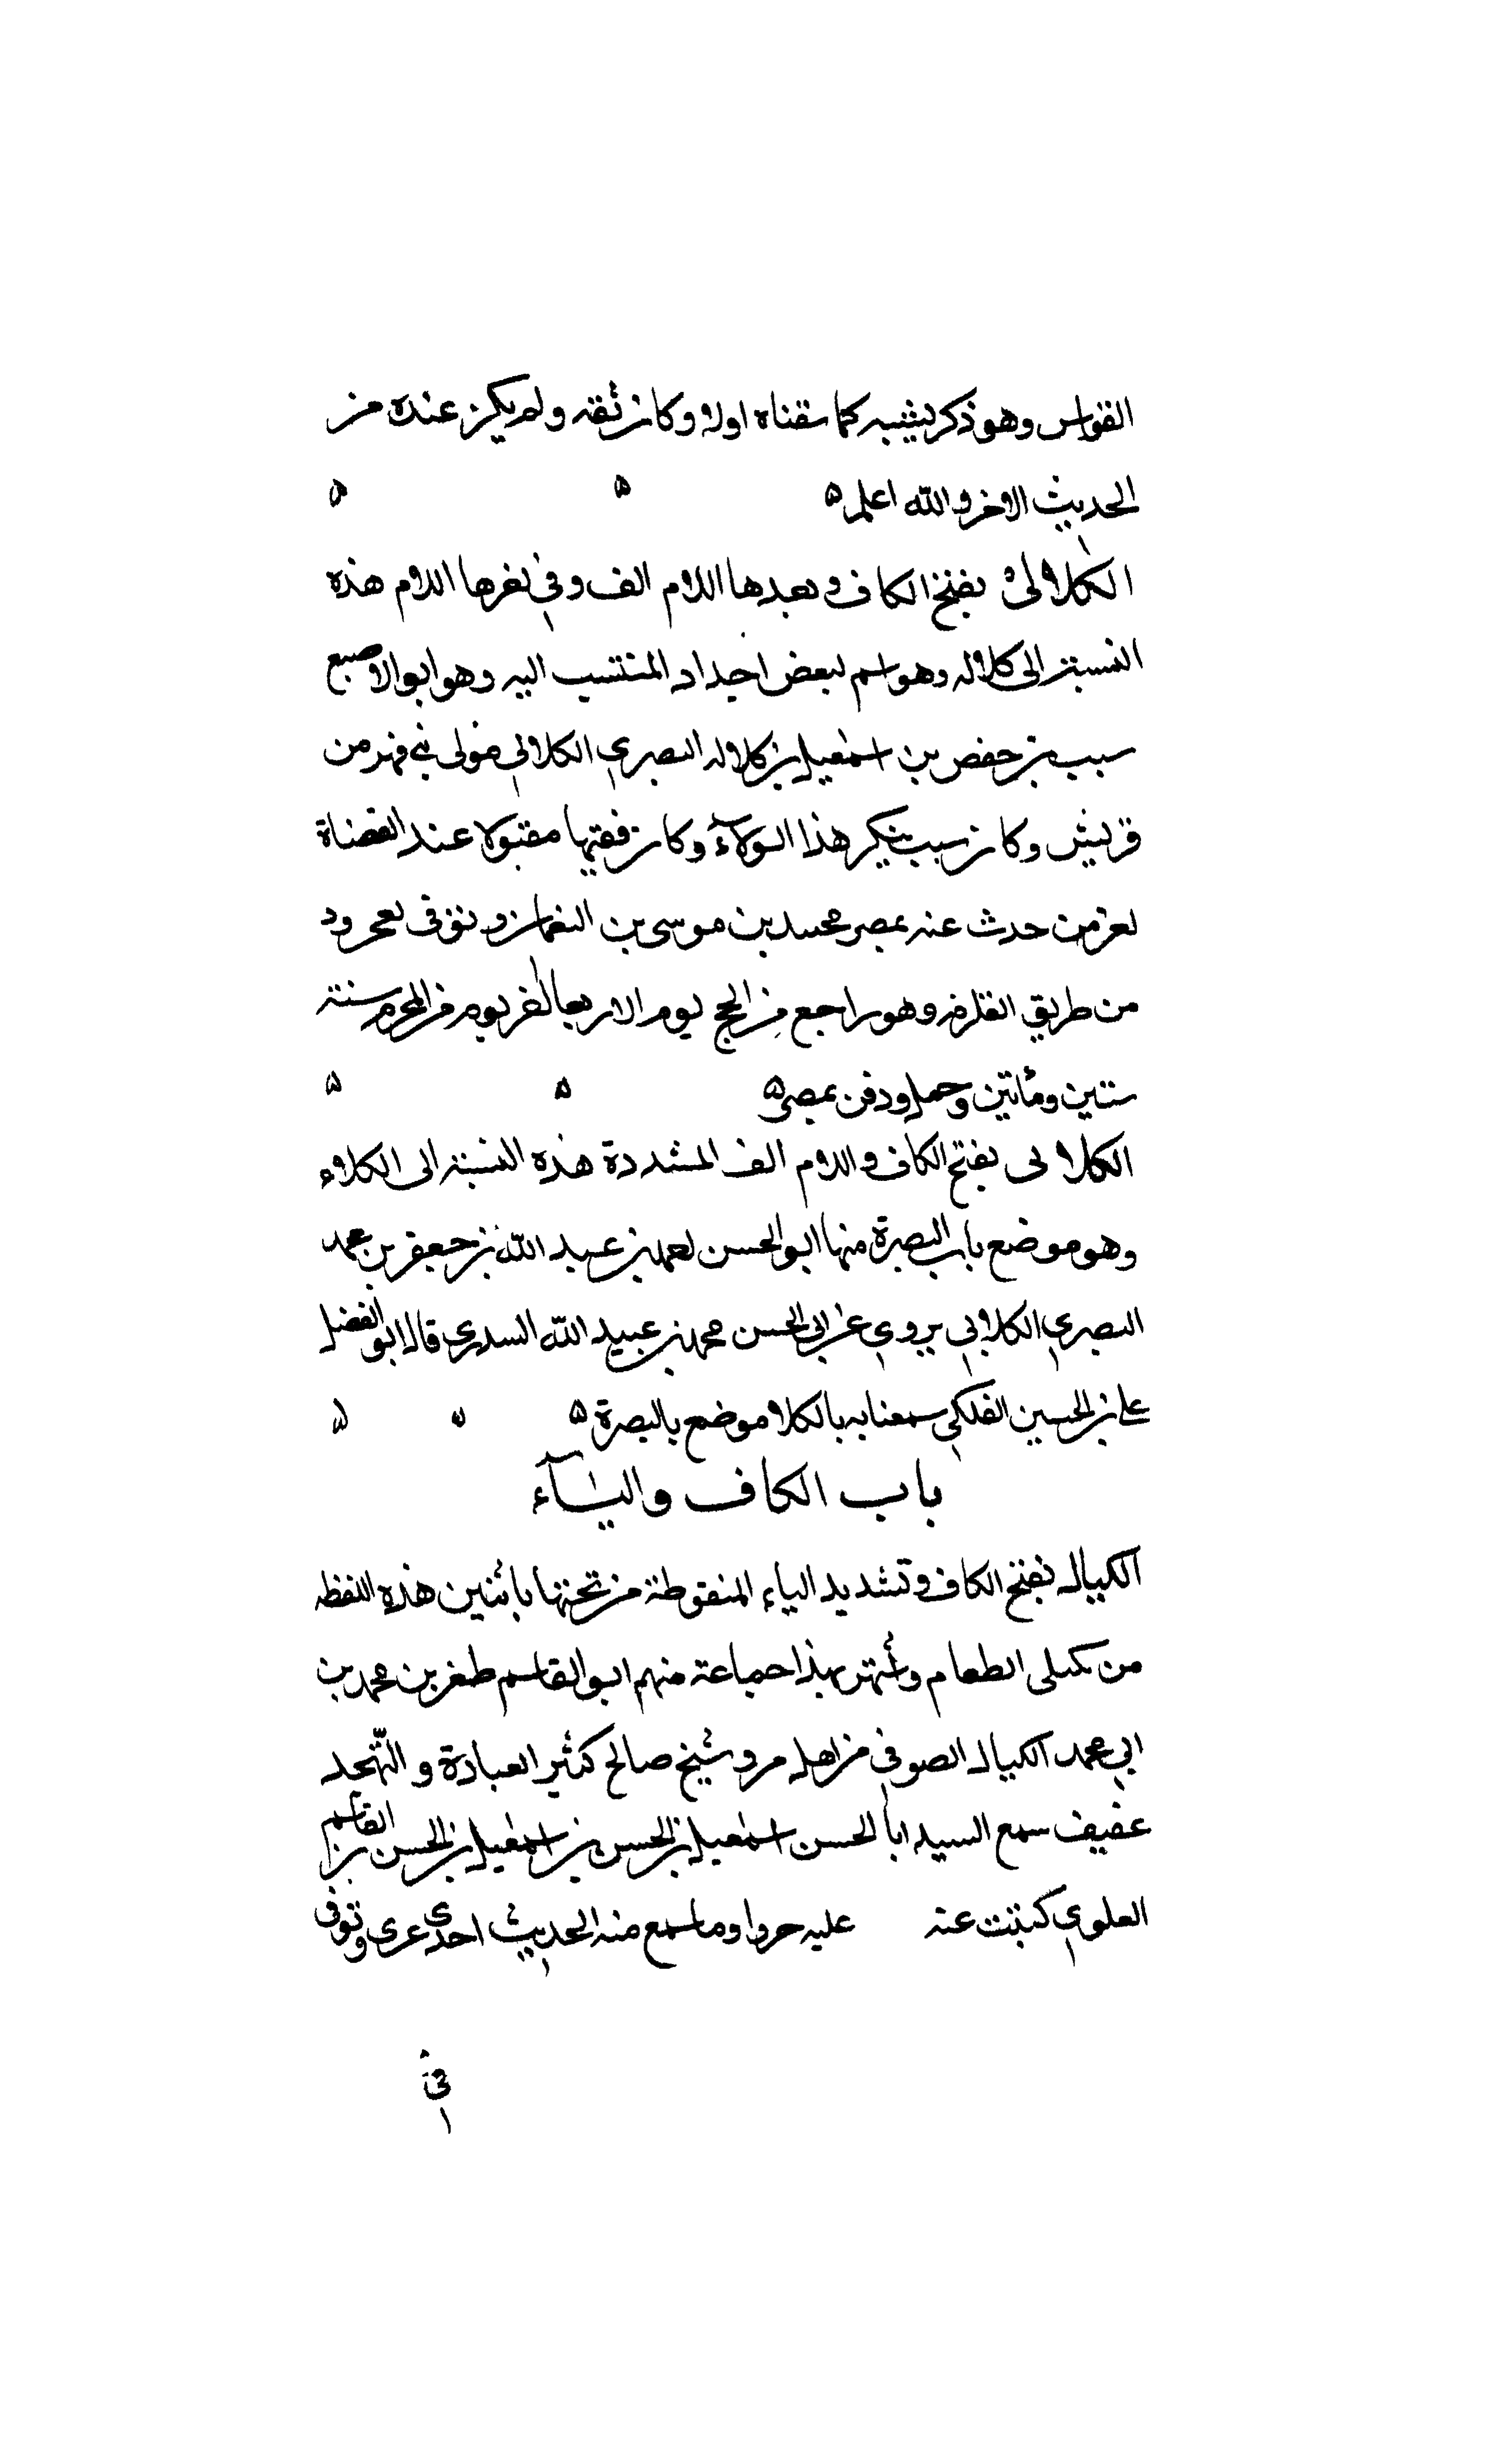 القواس وهو ذكر نسبه كما سقناه اولا وكان ثقه ولم يكن عنده من
الحديث الاخر والله اعلم ۵ ۵ ۵
الكلالى بفتح الكاف وبعدها اللام الف وفي اخرها اللام هذه
النسبة الى كلاله وهو اسم لبعض اجداد المنتسب اليه وهو ابو الاصبع
سبب بن حفص بن اسمعيل بن كلاله البصري الكلالي مولى بني فهر من
قريش وكان سبب ينكر هذا الولآء وكان فقيها مقبولا عند القضاة
حدث عنه بمصر محمد بن موسى بن النعمان وتوفى
من طريق القلزم وهو راجع من الحج يوم الاربعا لغر يوم من المحرم سنة
ستين ومأتين وحمل ودفن بمصر ۵ ۵ ۵
الكلا لى بفتح الكاف واللام الف المشددة هذه النسبة الى الكلاء
وهو موضع باب البصرة منها ابو الحسن بن عبد الله بن جعفر بن محمد
البصري الكلابي يروي عن ابي الحسن محمد بن عبيد الله السدري قال ابو الفضل
علي بن الحسين الفلكي سمعنا به بالكلا موضع بالبصرة ۵ ۵ ۵
باب الكاف واليآء
الكيال بفتح الكاف وتشديد الياء المنقوطة من تحتها باثنين هذه اللفظه
من كيلى الطعام واشتهر بهذا جماعة منهم ابو القاسم طغر بن محمد بن
ابي محمد الكيال الصوفي من اهل مرو شيخ صالح كثير العبادة والتهجد
عفيف سمع السيد ابا الحسن اسمعيل بن الحسن بن اسمعيل بن الحسن بن القاسم
العلوي كتبت عنه عليه وما سمع منه الحديث احدى وتوفى
في